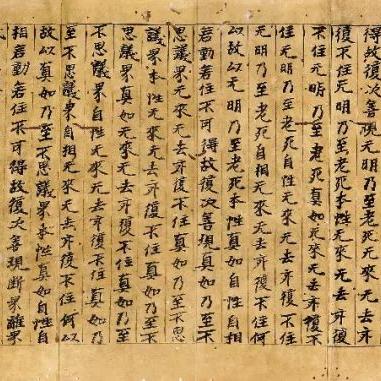 得故復次善現无明乃至老死无來无去亦
復不住无明乃至老死本性无來无去亦復
不住无明乃至老死真如无來无去亦復不
住无明乃至老死自性无來无去亦復不住
无明乃至老死自相无來无去亦復不住何
以故以无明乃至老死本性真如自性自相
若動若住不可得故復次善現真如乃至不
思議界无來无去亦復不住真如乃至不思
議界本性无來无去亦復不住真如乃至不
思議界真如无來无去亦復不住真如乃至
不思議界自性无來无去亦復不住真如乃
至不思議界自相无來无去亦復不住何以
故以真如乃至不思議界本性真如自性自
相若動若住不可得故復次善現断界離界